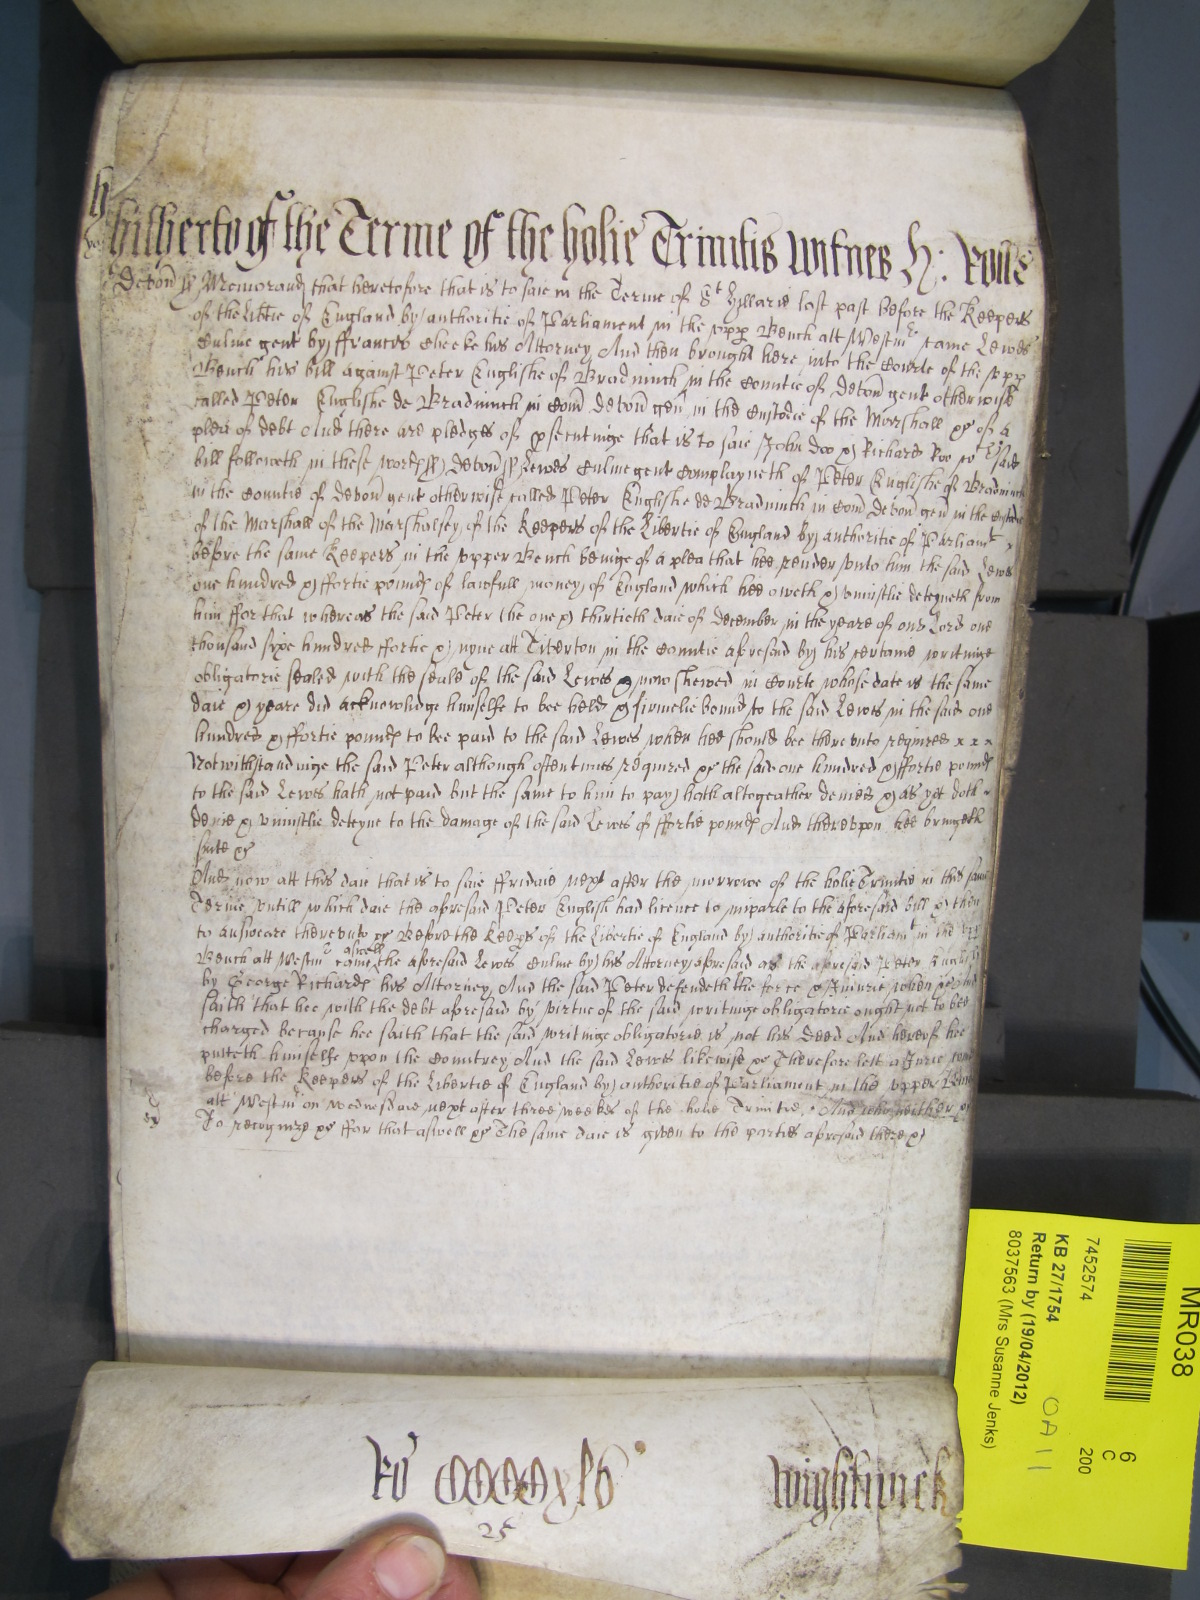 hitherto of the Terme of the holie Trinitie Witnes H: Rolle
Devon ss Memorand that heretofore that is to saie in the Terme of St Hillarie last past before the Keepers
of the Libtie of England by authoritie of Parliament in the upp Bench att Westmr came Lewes
Culme gent by Francis Cheeke his Attorney And then brought here into the Courte of the sd upp
Bench his bill against Peter Englishe of Bradninch in the Countie of Devon gent otherwise
called Peter Englishe de Bradninch in Com Devon gen in the Custodie of the Marshall &c of a
plea of debt And there are pledges of psecutinge that is to saie John Doo & Richard Roo wch said
bill followeth in these words ss Devon ss Lewes Culme gent complayneth of Peter Englishe of Bradninch
in the Countie of Devon gent otherwise called Peter Englishe de Bradninch in Com Devon gen in the Custodie
of the Marshall of the Marshalsey of the Keepers of the Libertie of England by authoritie of Parliamt
before the same Keepers in the upper Bench beinge of a plea that hee render unto him the said Lewes
one hundred & fortie pounds of lawfull money of England which hee oweth & uniustlie deteyneth from
him ffor that whereas the said Peter the one & thirtieth daie of December in the yeare of our Lord one
thousand sixe hundred ffortie & nyne att Tiverton in the Countie aforesaid by his certaine writinge
obligatorie sealed with the seale of the said Lewes & now shewed in Courte whose date is the same
daie & yeare did acknowlidge himselfe to bee held & firmelie bound to the said Lewes in the said one
hundred & ffortie pounds to bee paid to the said Lewes when hee should bee thereunto required x x x
Notwithstandinge the said Peter although oftentimes required &c the said one hundred & ffortie pounds
to the said Lewes hath not paid but the same to him to pay hath altogeather denied & as yet doth
denie & uniustlie deteyne to the damage of the said Lewes of ffortie pounds And thereupon hee bringeth
suite &c
And now att this daie that is to saie ffridaie next after the morrowe of the holie Trinitie in this same
Terme untill which daie the aforesaid Peter English had licence to imparle to the aforesaid bill & then
to answeare thereunto &c Before the Keeps of the Libertie of England by authoritie of Parliamt in the upp
Bench att Westmr came aswell the aforesaid Lewes Culme by his Attorney aforesaid as the aforesaid Peter English
by George Richards his Attorney And the said Peter defendeth the force & Iniurie when &c And
saith that hee with the debt aforesaid by virtue of the said writinge obligatorie ought not to bee
charged because hee saith that the said writinge obligatorie is not his Deed And hereof hee
putteth himselfe uppon the Countrey And the said Lewes likewise &c Therefore lett a Jurie come
before the Keepers of the Libertie of England by authoritie of Parliament in the upper Bench
att Westmr on Wednesdaie next after three weekes of the holie Trinitie And who neither &c
To recognize &c ffor that aswell &c The same daie is given to the parties aforesaid there &c
Ro CCCCxlv
Wightwick
25
MR038
6
C
200
7452574
KB 27/1754
Return by (19/04/2012)
8037563 (Mrs Susanne Jenks)
OA 11